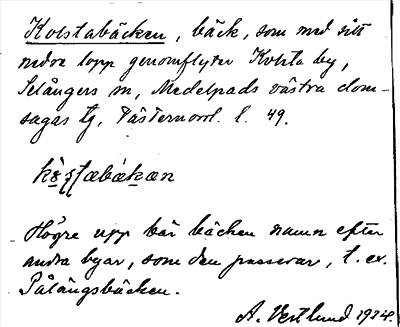 Kolstabäcken, bäck, som med sitt
nedre lopp genomflyter Kolsta by,
Selångers sn, Medelpads västra dom-
sagas tg, Västernorrl. l. 49.
Högre upp bär bäcken namn efter
andra byar, som den passerar, t. ex.
Pålängsbäcken.
A. Vestlund 1924.